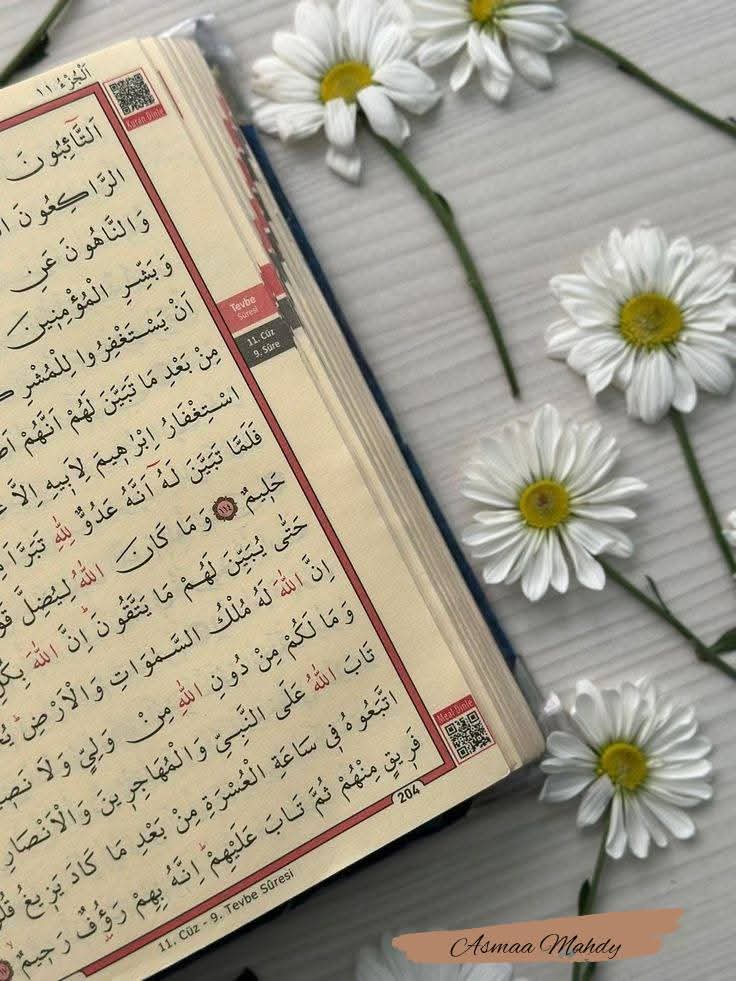 اَلْجُزْءُ ١١
Kuran Dinle
اَلتَّٓائِبُونَ
الرَّاكِعُونَ
وَالنَّاهُونَ عَنِ
وَبَشِّرِ الْمُؤْمِن۪ينَ
اَنْ يَسْتَغْفِرُوا لِلْمُشْرِ
مِنْ بَعْدِ مَا تَبَيَّنَ لَهُمْ اَنَّهُمْ
اسْتِغْفَارُ اِبْرٰه۪يمَ لِاَب۪يهِ اِلَّا
فَلَمَّا تَبَيَّنَ لَهُٓ اَنَّهُ عَدُوٌّ لِلّٰهِ تَبَرَّاَ
حَل۪يمٌ ١١٤ وَمَا كَانَ اللّٰهُ لِيُضِلَّ
حَتّٰى يُبَيِّنَ لَهُمْ مَا يَتَّقُونَۜ اِنَّ اللّٰهَ بِكُلِّ
اِنَّ اللّٰهَ لَهُ مُلْكُ السَّمٰوَاتِ وَالْاَرْضِۜ
وَمَا لَكُمْ مِنْ دُونِ اللّٰهِ مِنْ وَلِيٍّ وَلَا
تَابَ اللّٰهُ عَلَى النَّبِيِّ وَالْمُهَاجِر۪ينَ وَالْاَنْصَارِ
اتَّبَعُوهُ ف۪ي سَاعَةِ الْعُسْرَةِ مِنْ بَعْدِ مَا كَادَ يَز۪يغُ
فَر۪يقٍ مِنْهُمْ ثُمَّ تَابَ عَلَيْهِمْۜ اِنَّهُ بِهِمْ رَؤُ۫فٌ رَح۪يمٌ
Tevbe
Sûresi
11. Cüz
9. Sûre
Meal Dinle
204
11. Cüz - 9. Tevbe Sûresi
Asmaa Mahdy